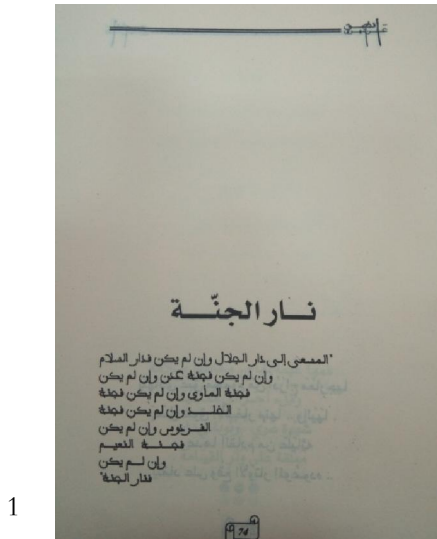 نار الجنّة
"المنعى إلى دار الجلال وإن لم يكن فدار السلام
وإن لم يكن فجنة عدن وإن لم يكن
فجنة المأوى وإن لم يكن فجنة
الخلد وإن لم يكن فجنة
الفردوس وإن لم يكن
فجنة النعيم
وإن لم يكن
فنار الجنة"
74
1